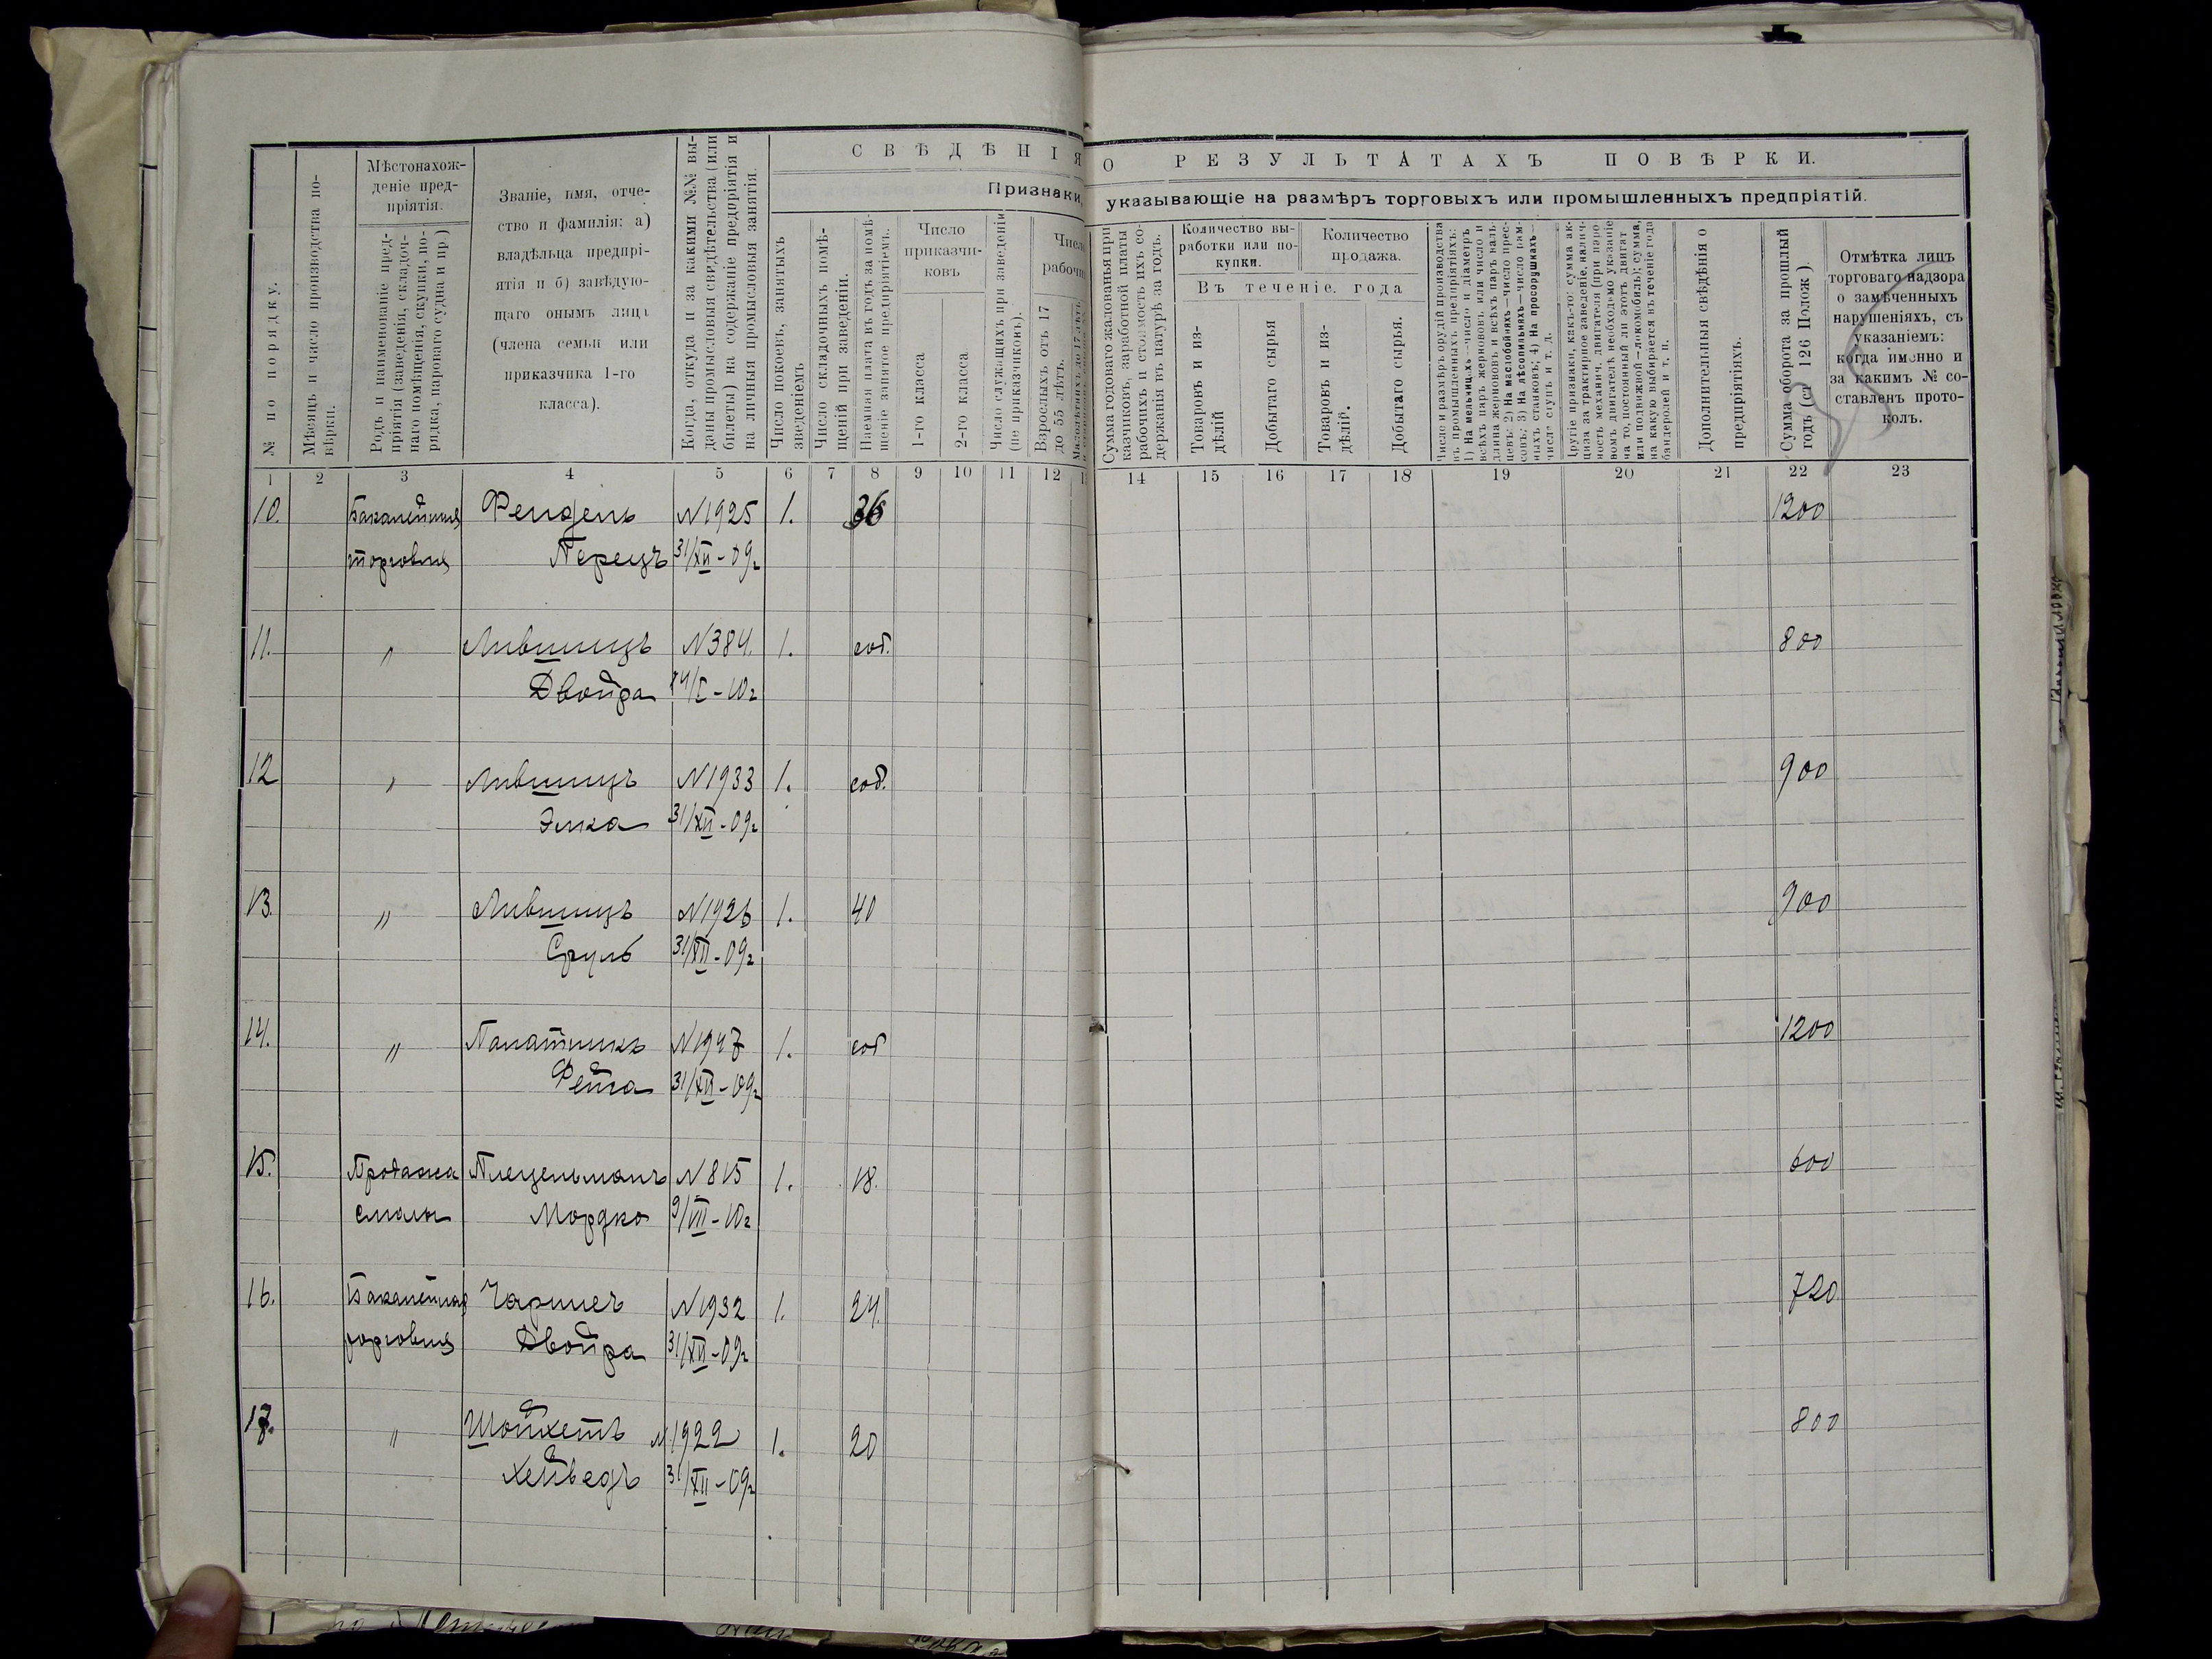 СВѢДѢНІЯ О РЕЗУЛЬТАТАХЪ ПОВѢРКИ.
Признаки, указывающіе на размѣръ торговыхъ или промышленныхъ предпріятій.
№ по порядку.
Мѣсяцъ и число производства по-
вѣрки.
Мѣстонахож-
деніе пред-
пріятія.
Родъ и наименованіе пред-
пріятія (заведенія, складоч-
наго помѣщенія, скупки, по-
рядка, пароваго судна и пр)
Званіе, имя, отче-
ство и фамилія: а)
владѣльца предпрі-
ятія и б) завѣдую-
щаго онымъ лица
(члена семьи или
приказчика 1-го
класса).
Когда, откуда и за какими №№ вы-
даны промысловыя свидѣтельства (или
билеты) на содержаніе предпріятія и
на личныя промысловыя занятія.
Число покоевъ, занятыхъ
зведеніемъ
Число складочныхъ помѣ-
щеній при заведеніи.
Наемная плата въ годъ за помѣ-
щеніе занятое предпріятіемъ.
Число
приказчи-
ковъ
1-го класса
2-го класса
Число служащихъ при заведеніи
(не приказчиковъ).
Число
рабочи
Взрослыхъ отъ 17
до 55 лѣтъ.
Сумма годоваго жалованья при
казчиковъ, заработной платы
рабочихъ и стоимость ихъ со-
держанія въ натурѣ за годъ.
Количество вы-
работки или по-
купки.
Количество
продажа.
Въ теченіе года
Товаровъ и из-
дѣлій
Добытаго сырья
Товаровъ и из-
дѣлій.
Добытаго сырья.
Число и размѣръ орудій производства
въ промышленныхъ предпріятіяхъ:
1) На мельницахъ—число и діаметръ
всѣхъ паръ жернововъ или число и
длина жерновов и всѣхъ паръ валь-
цевъ: 2) На маслобойняхъ—число прес-
совъ; 3) На лѣсопильняхъ—число рам-
ныхъ станковъ; 4) На просорушкахъ—
число ступъ и т. д.
Другіе признаки, какъ-то: сумма ак-
циза за трактирное заведеніе, налич-
ность механич. двигателя (при паро-
вомъ двигателѣ необходимо указаніе
на то, постоянный ли этотъ двигат
или подвижной—локомобиль); сумма,
на какую выбирается въ теченіе года
бандеролей и т. п.
Дополнительныя свѣдѣнія о
предпріятіяхъ.
Сумма оборота за прошлый
годъ (ст 126 Полож).
Отмѣтка лицъ
торговаго надзора
о замѣченныхъ
нарушеніяхъ, съ
указаніемъ:
когда именно и
за какимъ № со-
ставленъ прото-
колъ.
1 2 3 4 5 6 7 8 9 10 11 12 14 15 16 17 18 19 20 21 22 23
10. Бакалейная Фендель N1925 1. 36 1200
торговля Перецъ 31/XII-09г
11. " Лившицъ N384. 1. соб. 800
Двойра 14/I-10г
12 " Лившицъ N1933 1. соб. 900
Элка 31/XII-09г
13. " Лившицъ N1926 1. 40 900
Сруль 31/XII-09г
14. " Палатникъ N1947 1. соб 1200
Фейга 31/XII-09г
15. Продажа Плецельманъ N815 1. 18. 600
смолы Мордко 9/VII-10г
16. Бакалейная N1932 1. 24. 720
торговля Двойра 31/XII-09г
17. " Шойхетъ N1922 1. 20 800
31/XII-09г